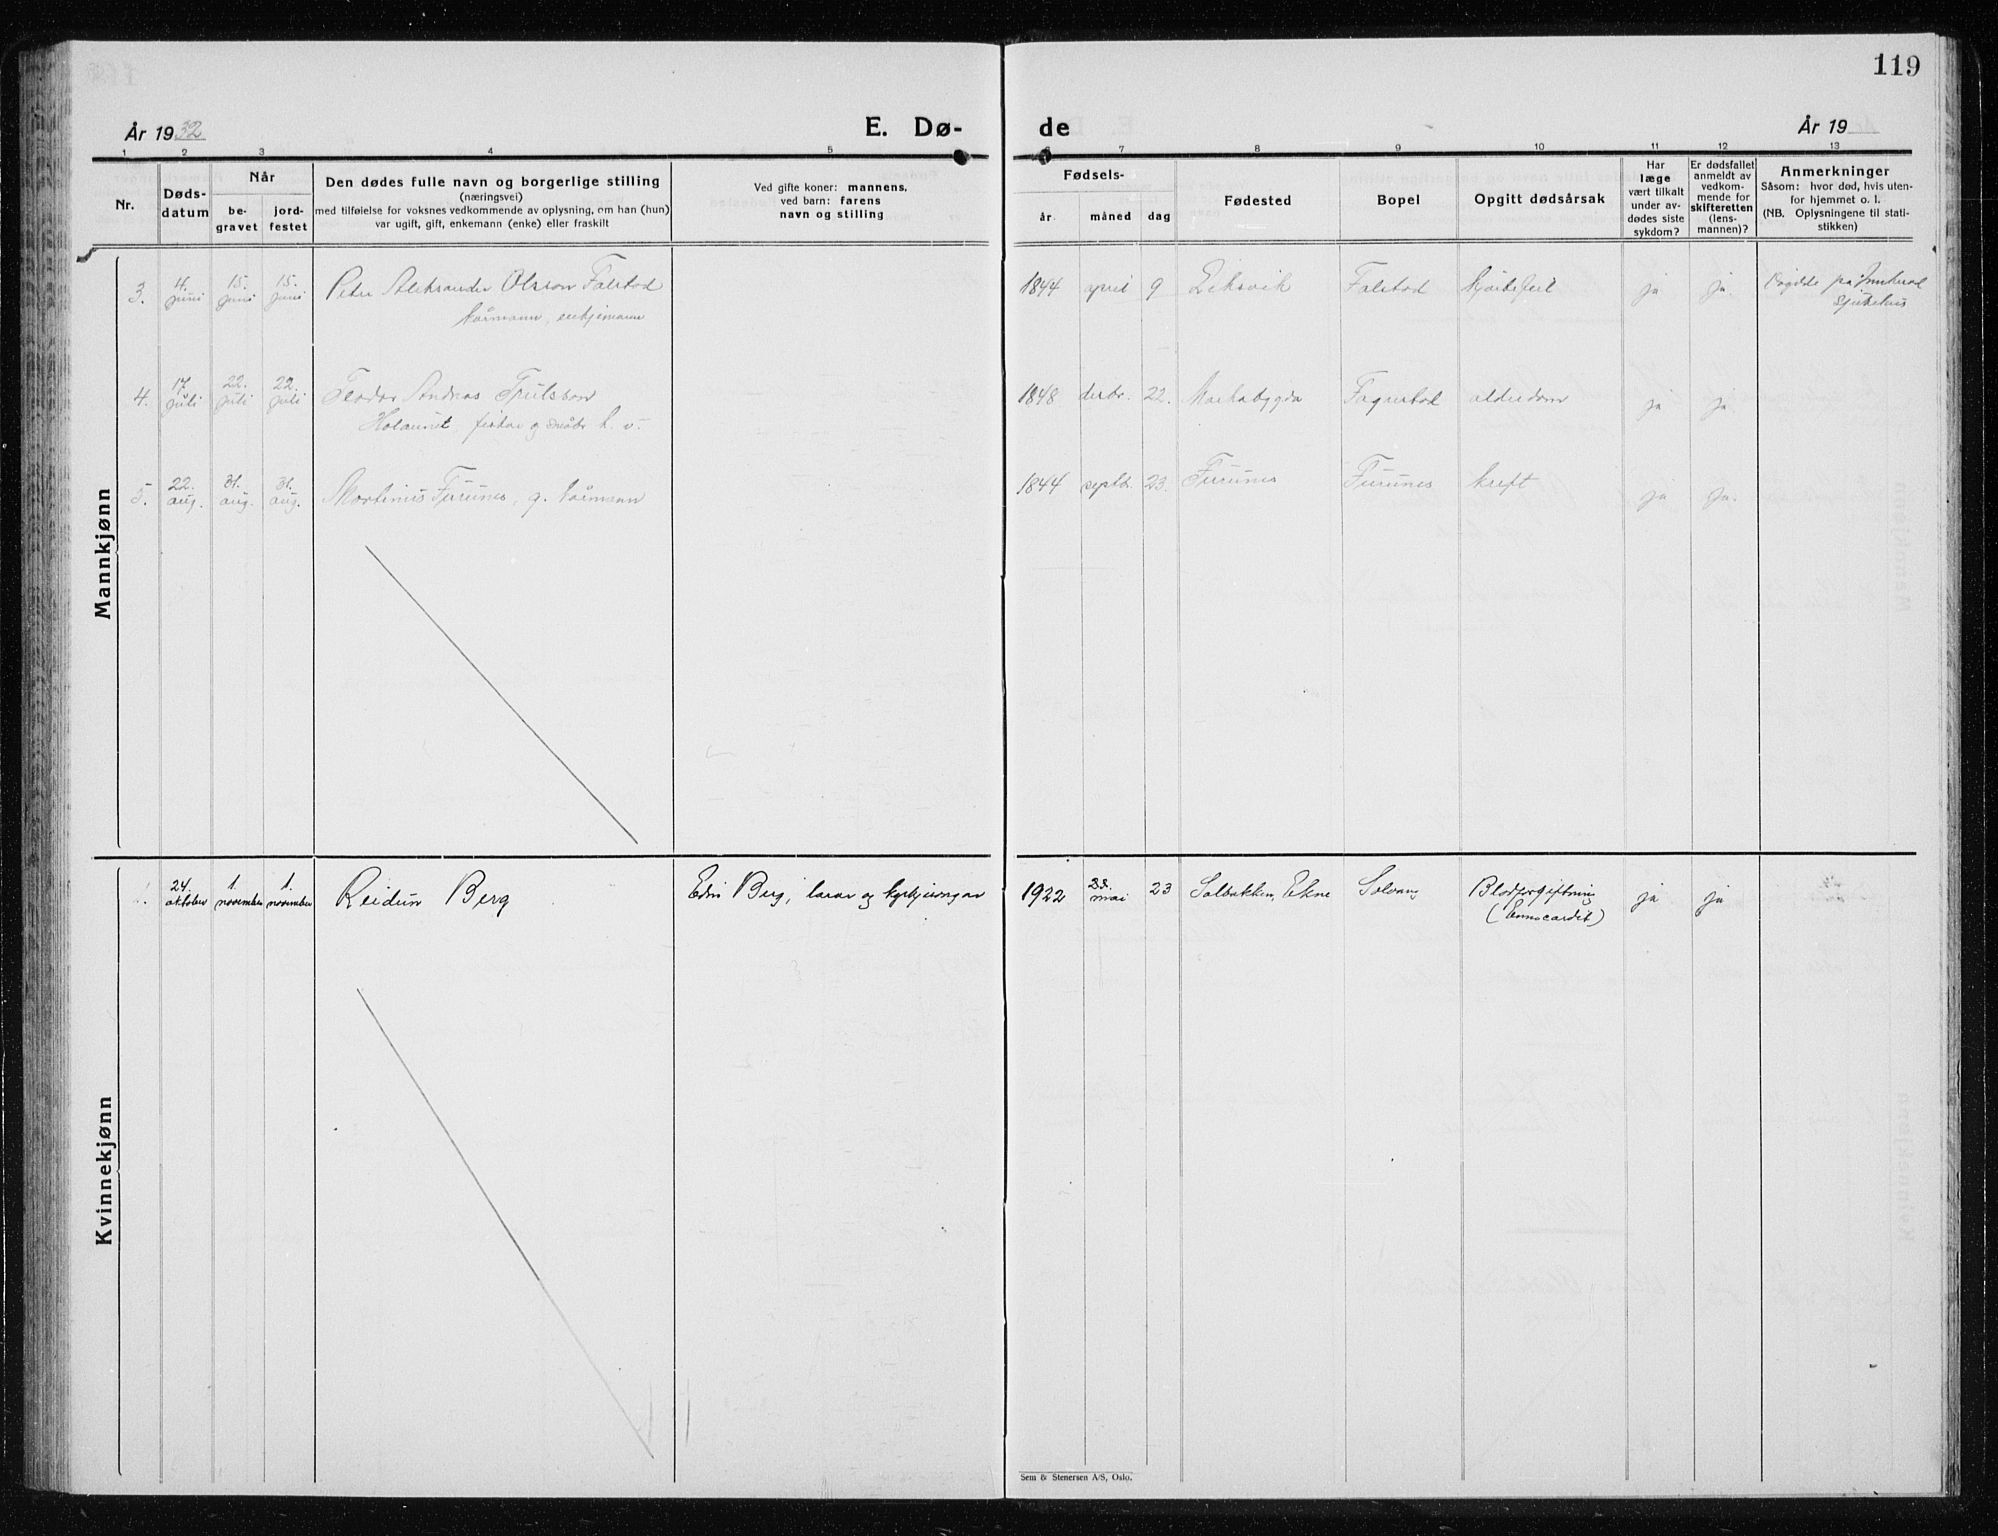 119
År 1932
E. Dø-
de
År 19
1 2 3 4 5
6 7 8 9 10 11 12 13
Nr.
Døds-
datum
Når
be-
gravet
jord-
festet
Den dødes fulle navn og borgerlige stilling
(næringsvei)
med tilføielse for voksnes vedkommende av oplysning, om han (hun)
var ugift, gift, enkemann (enke) eller fraskilt
Ved gifte koner: mannens,
ved barn: farens
navn og stilling
Fødsels-
år. måned dag
Fødested
Bopel
Opgitt dødsårsak
Har
læge
vært tilkalt
under av-
dødes siste
sykdom?
Er dødsfallet
anmeldt av
vedkom-
mende for
skifteretten
(lens-
mannen)?
Anmerkninger
Såsom: hvor død, hvis uten-
for hjemmet o. l.
(NB. Oplysningene til stati-
stikken)
Mannkjønn
3. 4. juni 15. juni 15. juni Peter Aleksander Olsson Falstad
kårmann, enkjemann
1844 april 9 Falstad ja ja
Sjukehus
4. 17 juli 22. juli 22. juli Teodor Andreas Trulsson
fiskar g.
1848 desbr. 22. Markabygda Fagerstad alderdom ja ja.
5. 22. aug. 31. aug. 31. aug. Martinus Furunes, g. kårmann
1844 septbr. 23. Furunes Furunes kreft ja ja.
Kvinnekjønn
1. 24. oktober 1. november 1. november Reidun Berg
Berg, lærar og kyrkjesongar
1922 mai 23 Solbakken, Ekne Solvang Blodforgiftning ja ja
Sem & Stenersen A/S, Oslo.